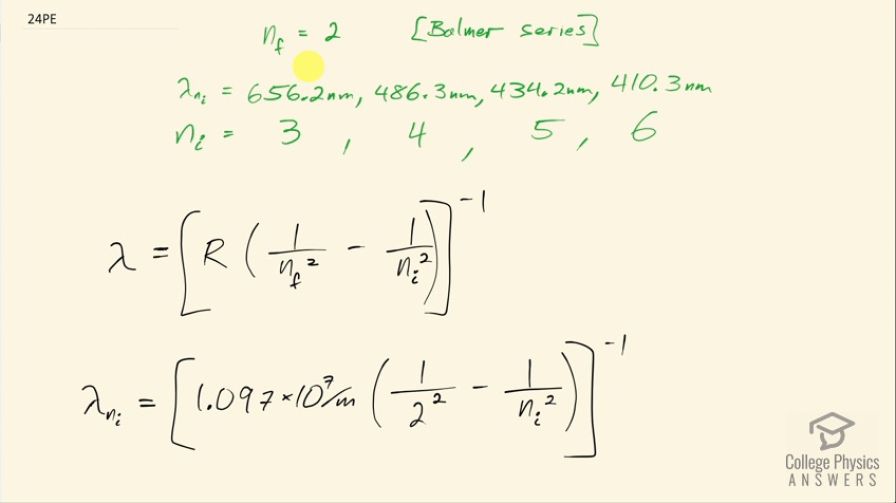 24PE
n_f = 2 [Balmer series]
λ_{n_i} = 656.2nm, 486.3nm, 434.2nm, 410.3nm
n_i = 3 , 4 , 5 , 6
λ = [R (1/n_f² - 1/n_i²)]⁻¹
λ_{n_i} = [1.097×10⁷/m (1/2² - 1/n_i²)]⁻¹
College Physics
ANSWERS